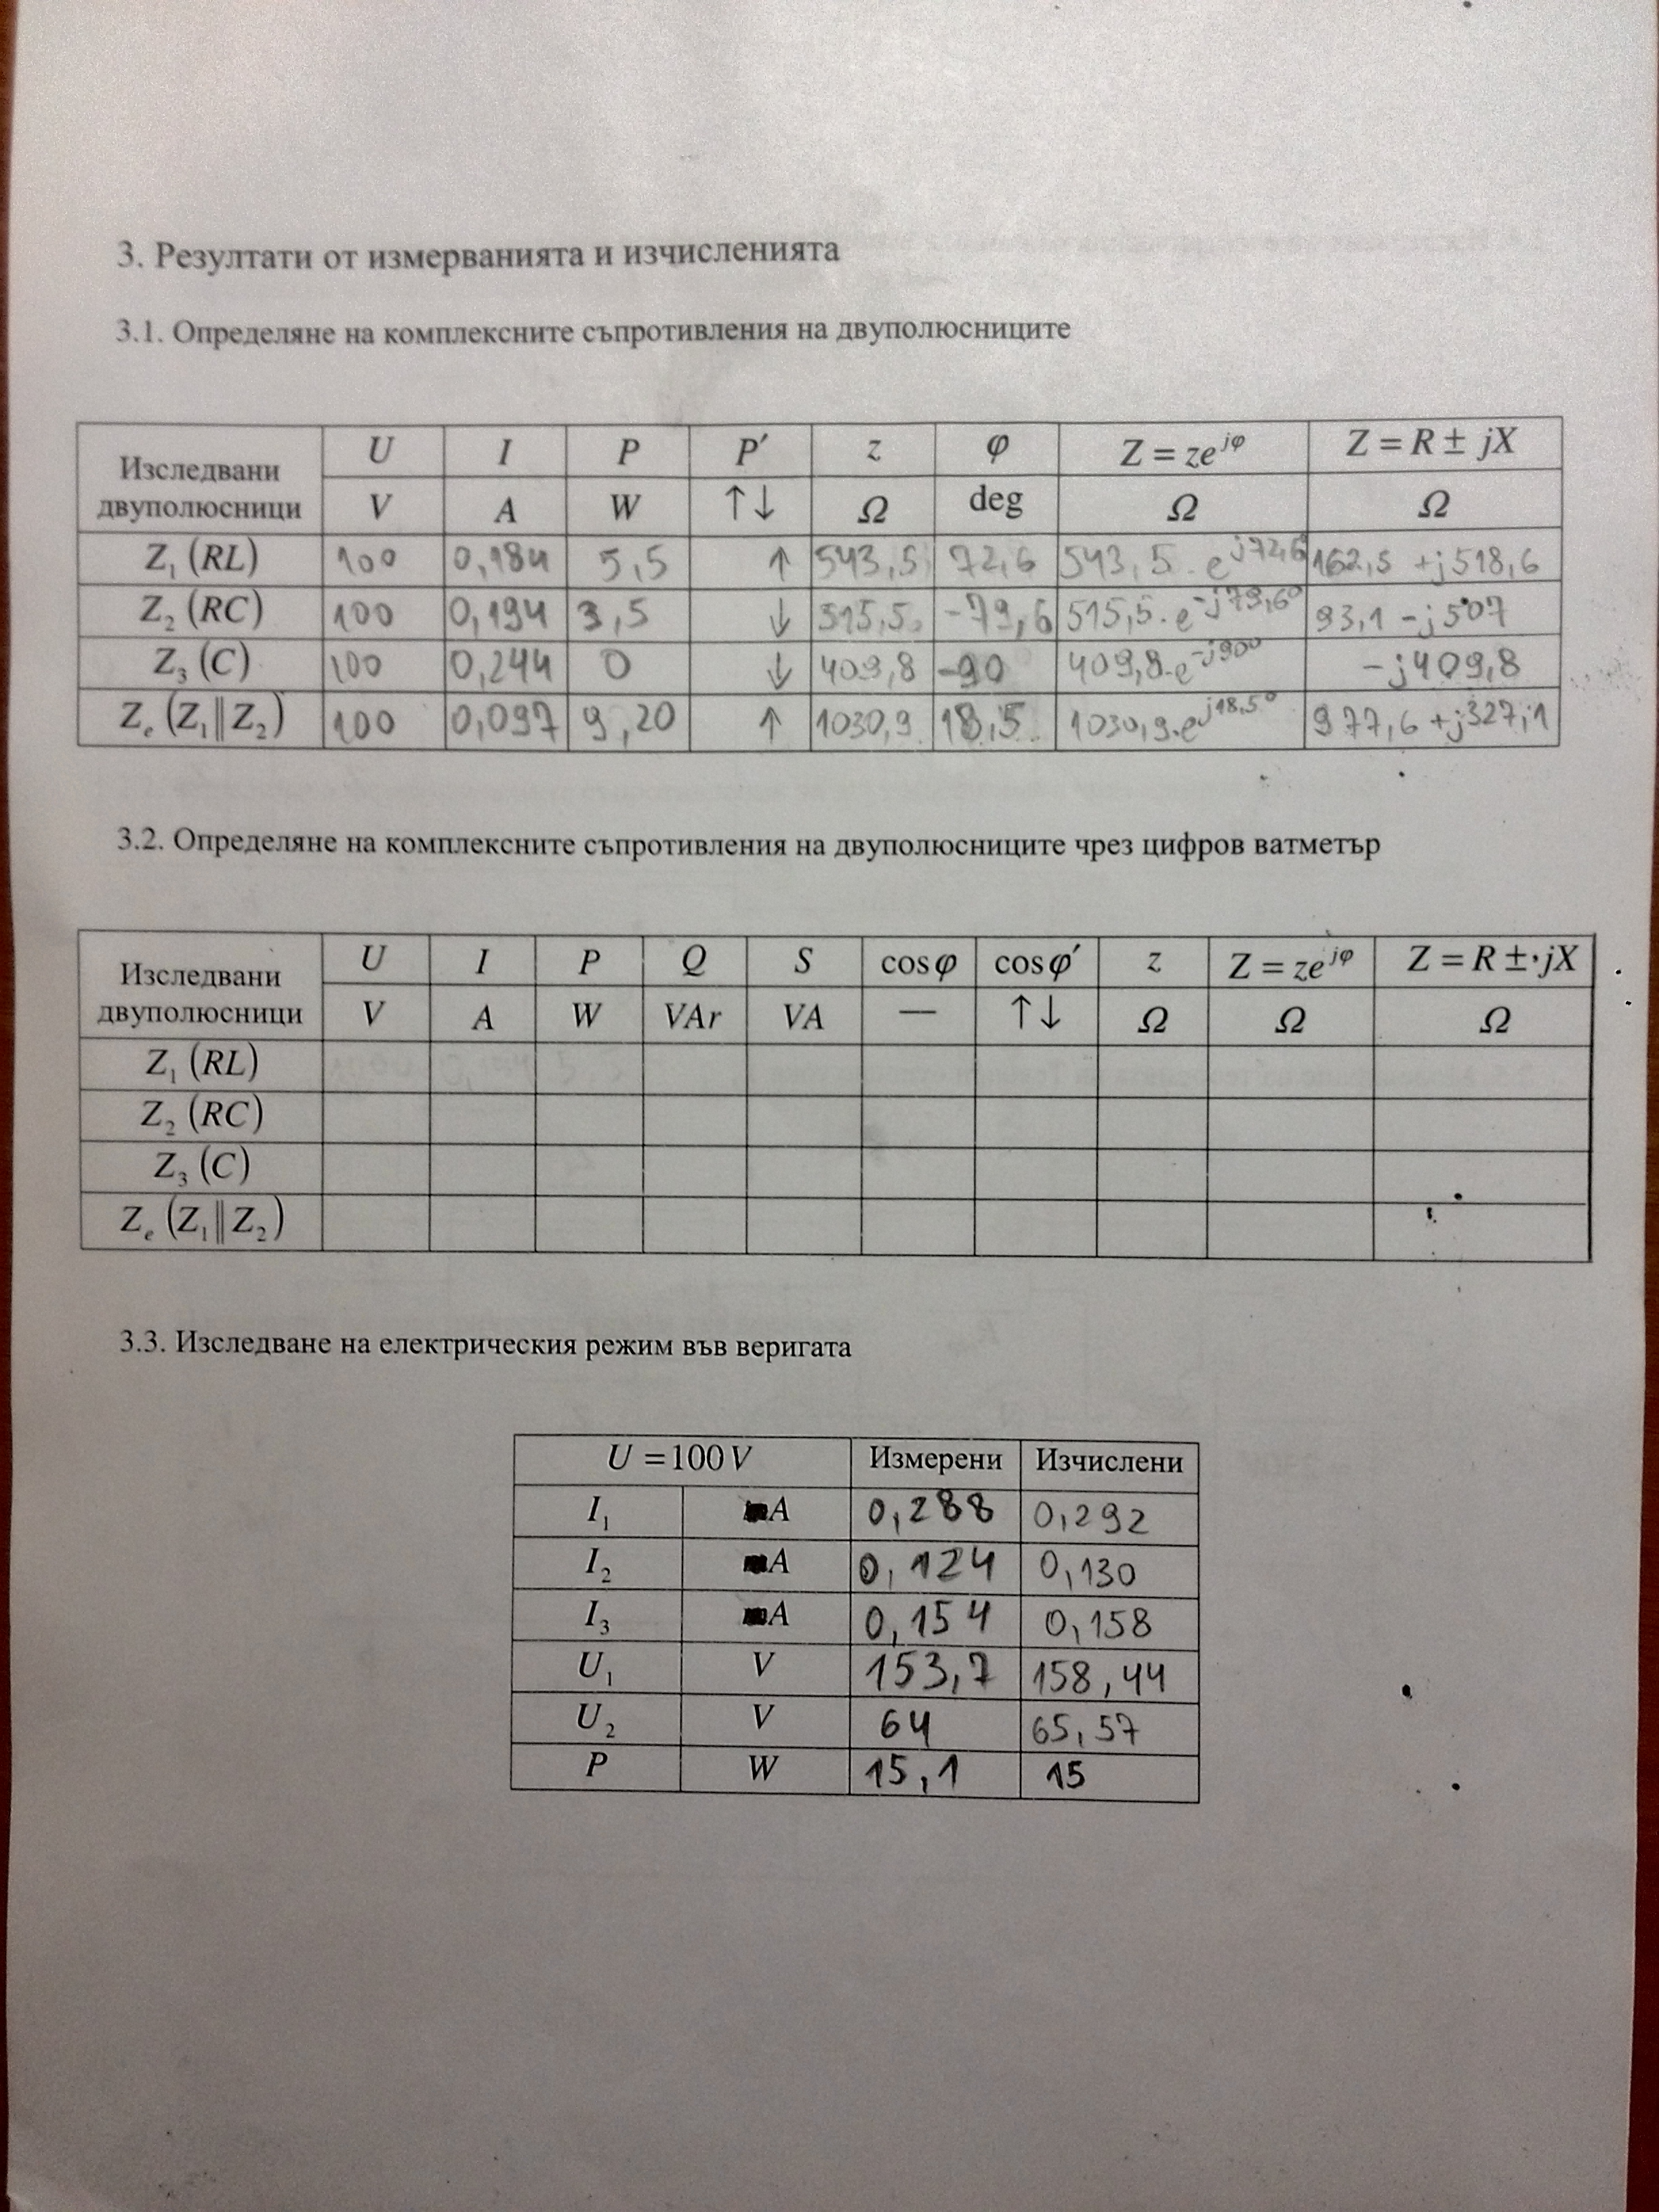 3. Резултати от измерванията и изчисленията
3.1. Определяне на комплексните съпротивления на двуполюсниците
Изследвани двуполюсници U I P P′ z φ Z = ze^jφ Z = R ± jX
V A W ↑↓ Ω deg Ω Ω
Z₁ (RL) 100 0,184 5,5 ↑ 543,5 72,6 543,5.e^j72,6° 162,5 +j518,6
Z₂ (RC) 100 0,194 3,5 ↓ 515,5 -79,6 515,5.e^-j79,6° 93,1 -j507
Z₃ (C) 100 0,244 0 ↓ 409,8 -90 409,8.e^-j90° -j409,8
Zₑ (Z₁∥Z₂) 100 0,097 9,20 ↑ 1030,9 18,5 1030,9.e^j18,5° 977,6 +j327,1
3.2. Определяне на комплексните съпротивления на двуполюсниците чрез цифров ватметър
Изследвани двуполюсници U I P Q S cosφ cosφ′ z Z = ze^jφ Z = R ± jX
V A W VAr VA — ↑↓ Ω Ω Ω
Z₁ (RL)
Z₂ (RC)
Z₃ (C)
Zₑ (Z₁∥Z₂)
3.3. Изследване на електрическия режим във веригата
U =100V Измерени Изчислени
I₁ A 0,288 0,292
I₂ A 0,124 0,130
I₃ A 0,154 0,158
U₁ V 153,7 158,44
U₂ V 64 65,57
P W 15,1 15